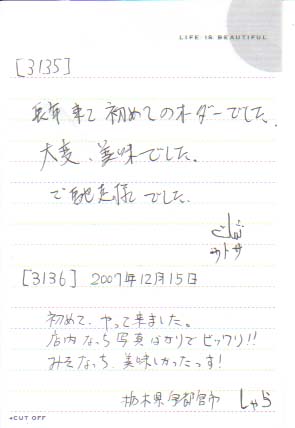 LIFE IS BEAUTIFUL
[3135]
来て初めてのオーダーでした.
大変、美味でした.
ご馳走様でした.
[3136] 2007年12月15日
初めて、やって来ました。
店内なら写真ばかりでビックリ!!
みそなっち、美味しかったっす!
栃木県宇都宮市 しゃら
CUT OFF